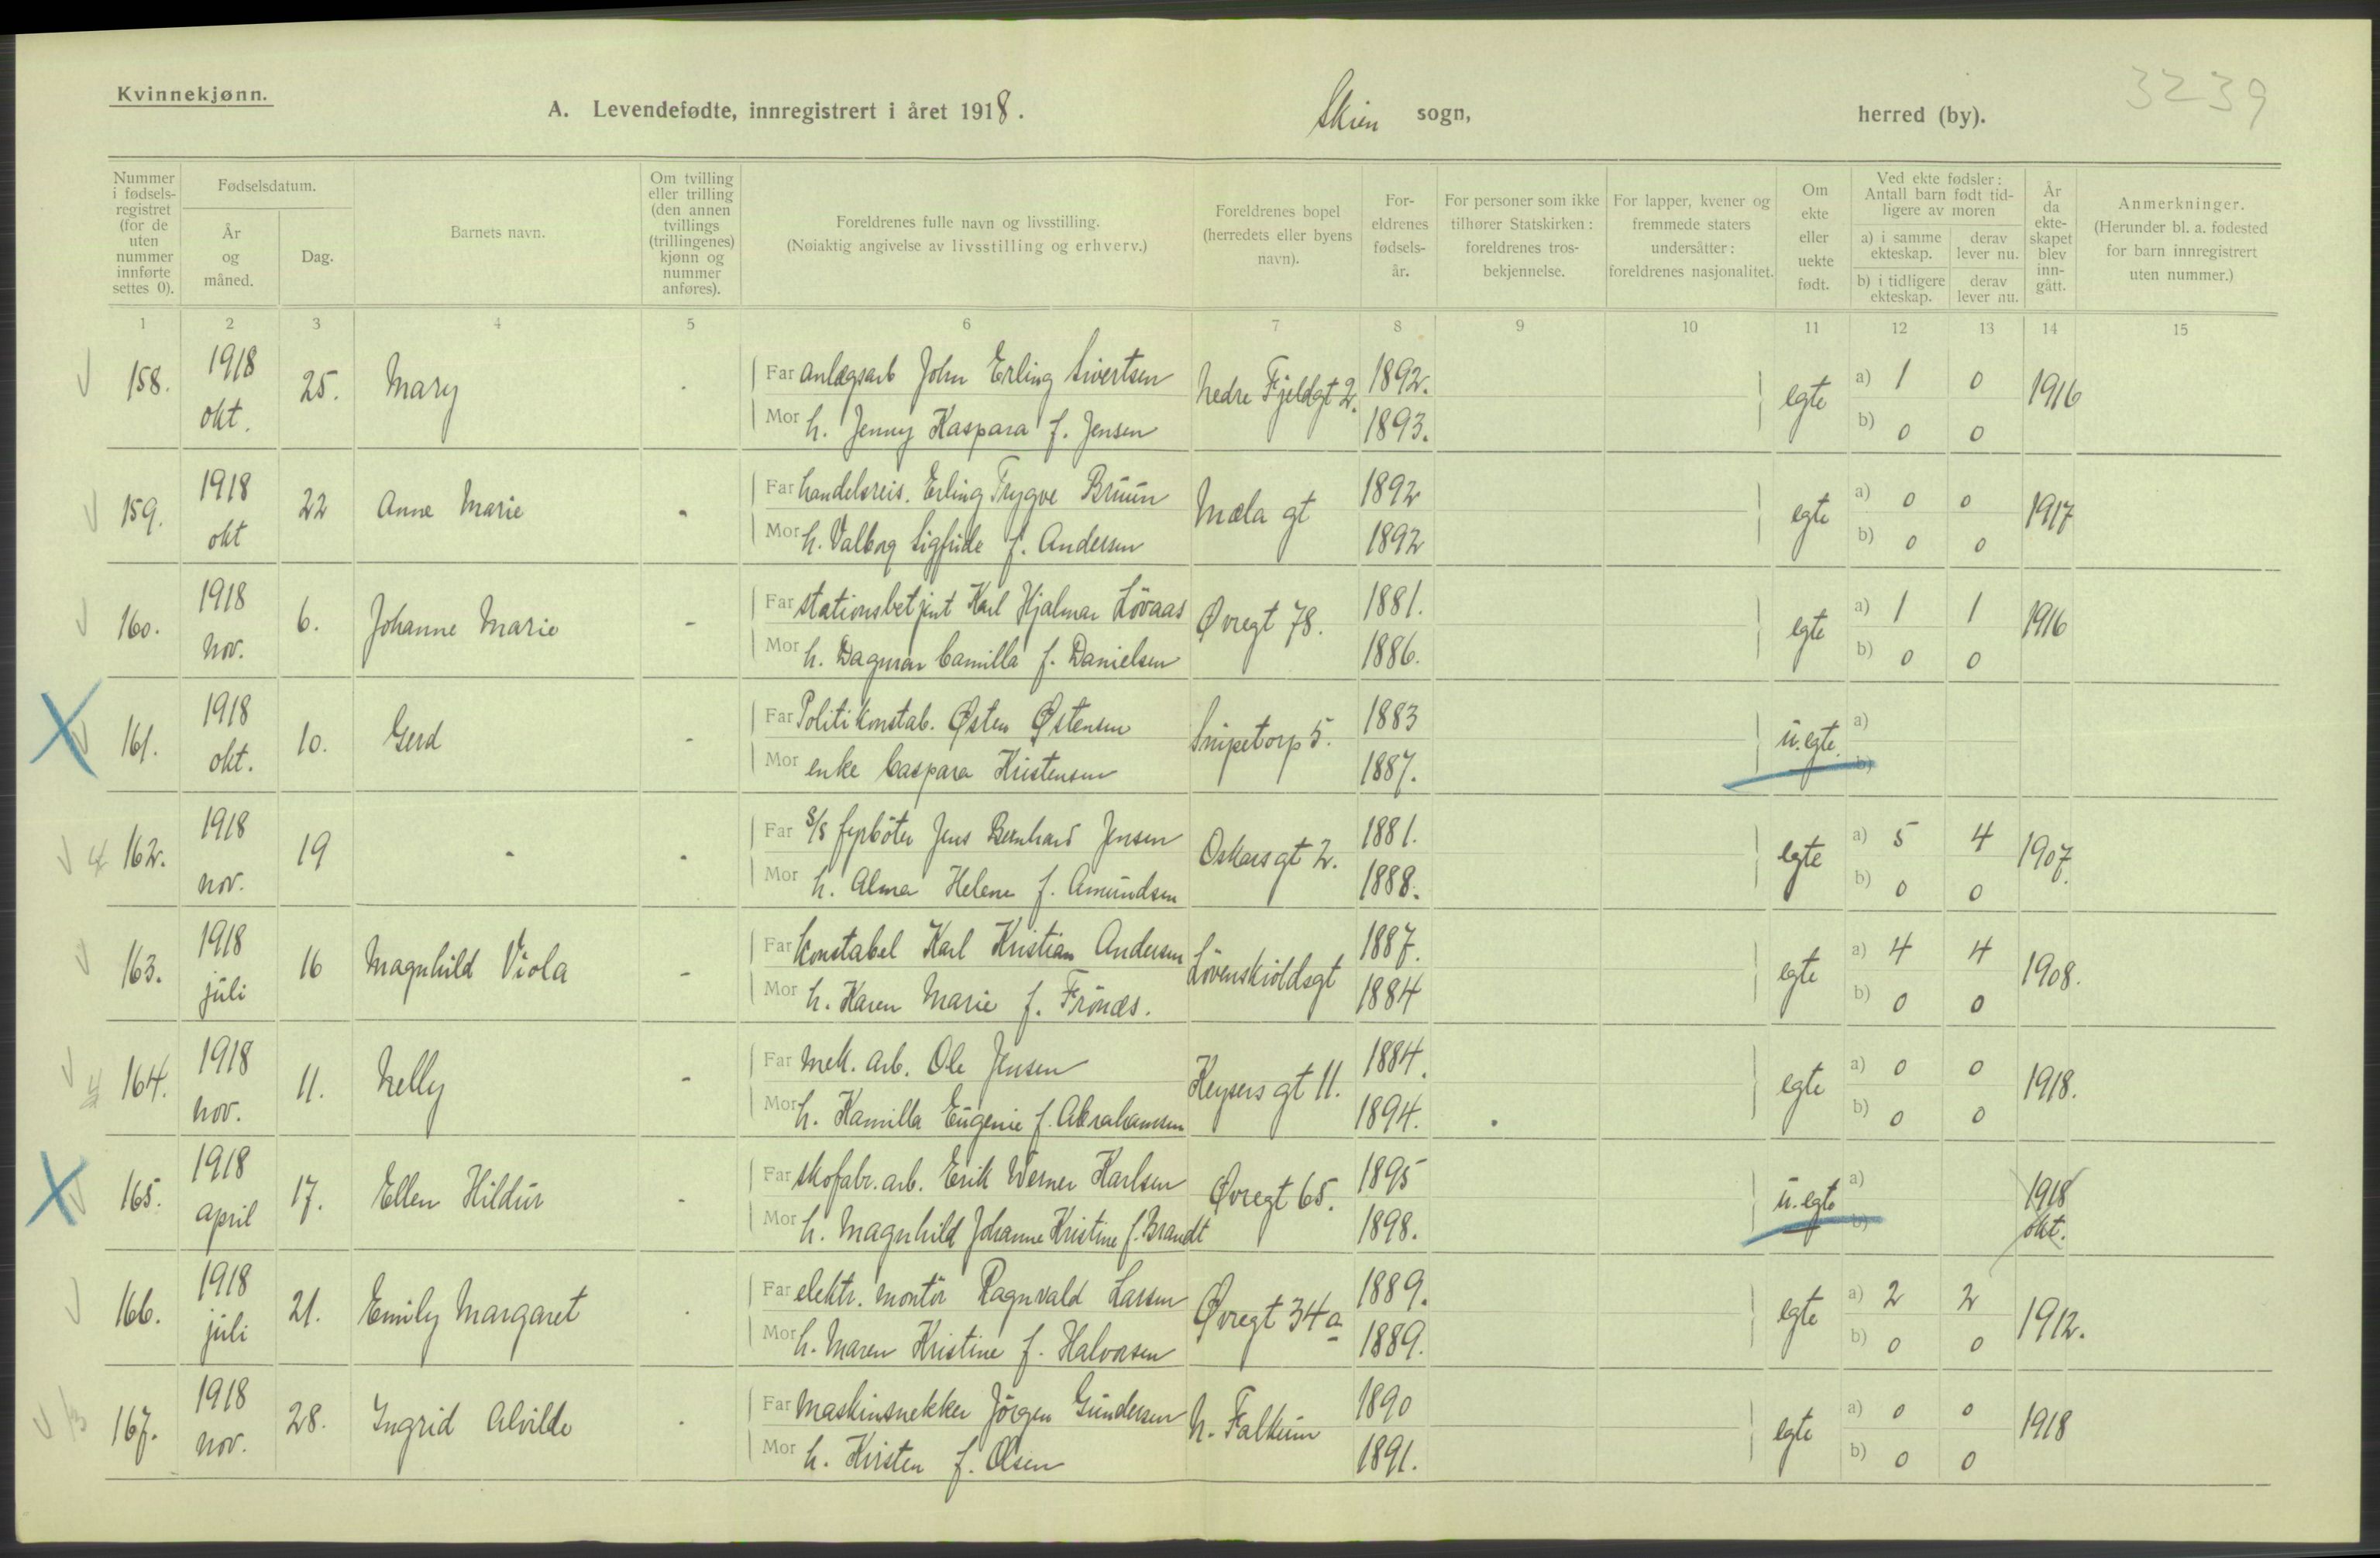 Kvinnekjønn.
3239
A. Levendefødte, innregistrert i året 1918. Skien sogn, herred (by).
Nummer i fødsels-registret (for de uten nummer innførte settes 0).
Fødselsdatum.
År og måned.
Dag.
Barnets navn.
Om tvilling eller trilling (den annen tvillings (trillingenes) kjønn og nummer anføres).
Foreldrenes fulle navn og livsstilling.
(Nøiaktig angivelse av livsstilling og erhverv.)
Foreldrenes bopel (herredets eller byens navn).
For-eldrenes fødsels-år.
For personer som ikke tilhører Statskirken: foreldrenes tros-bekjennelse.
For lapper, kvener og fremmede staters undersåtter: foreldrenes nasjonalitet.
Om ekte eller uekte født.
Ved ekte fødsler: Antall barn født tid-ligere av moren
a) i samme ekteskap. derav lever nu.
b) i tidligere ekteskap. derav lever nu.
År da ekte-skapet blev inn-gått.
Anmerkninger.
(Herunder bl. a. fødested for barn innregistrert uten nummer.)
1 2 3 4 5 6 7 8 9 10 11 12 13 14 15
158. 1918 okt. 25. Mary - Far anlægsarb John Erling Sivertsen Nedre Fjeldgt 2. 1892. egte a) 1 0 1916
Mor h. Jenny Kaspara f. Jensen 1893. b) 0 0
159. 1918 okt 22 Anne Marie - Far handelsreis. Erling Trygve Bruun Mæla gt 1892 egte a) 0 0 1917
Mor h. Valborg Sigfride f. Andersen 1892 b) 0 0
160. 1918 nov. 6. Johanne Marie - Far stationsbetjent Karl Hjalmar Lövaas Øvregt 78. 1881. egte a) 1 1 1916
Mor h. Dagmar Camilla f. Danielsen 1886. b) 0 0
161. 1918 okt. 10. Gerd - Far Politikonstab. Østen Østensen Snipetorp 5. 1883 u.egte. a)
Mor enke Caspara Kristensen 1887. b)
162. 1918 nov. 19 - - Far S/S fyrböter Jens Bernhard Jensen Oskarsgt 2. 1881. egte a) 5 4 1907.
Mor h. Alma Helene f. Amundsen 1888. b) 0 0
163. 1918 juli 16 Magnhild Viola - Far Konstabel Karl Kristian Andersen Lövenskioldsgt 1887. egte a) 4 4 1908.
Mor h. Karen Marie f. Frönæs. 1884 b) 0 0
164. 1918 nov. 11. Nelly - Far mek. arb. Ole Jensen Keysers gt 11. 1884. egte a) 0 0 1918.
Mor h. Kamilla Eugenie f. Abrahamsen 1894. b) 0 0
165. 1918 april 17. Ellen Hildur - Far skofabr. arb. Erik Werner Karlsen Øvregt 65. 1895 u.egte a) 1918 okt.
Mor h. Magnhild Johanne Kristine f. Brandt 1898. b)
166. 1918 juli 21. Emily Margaret - Far elektr. montör Ragnvald Larsen Øvregt 34a 1889. egte a) 2 2 1912.
Mor h. Maren Kristine f. Halvorsen 1889. b) 0 0
167. 1918 nov. 28. Ingrid Alvilde - Far Maskinsnekker Jörgen Gundersen N. Falkum 1890 egte a) 0 0 1918
Mor h. Kirsten f. Olsen 1891. b) 0 0